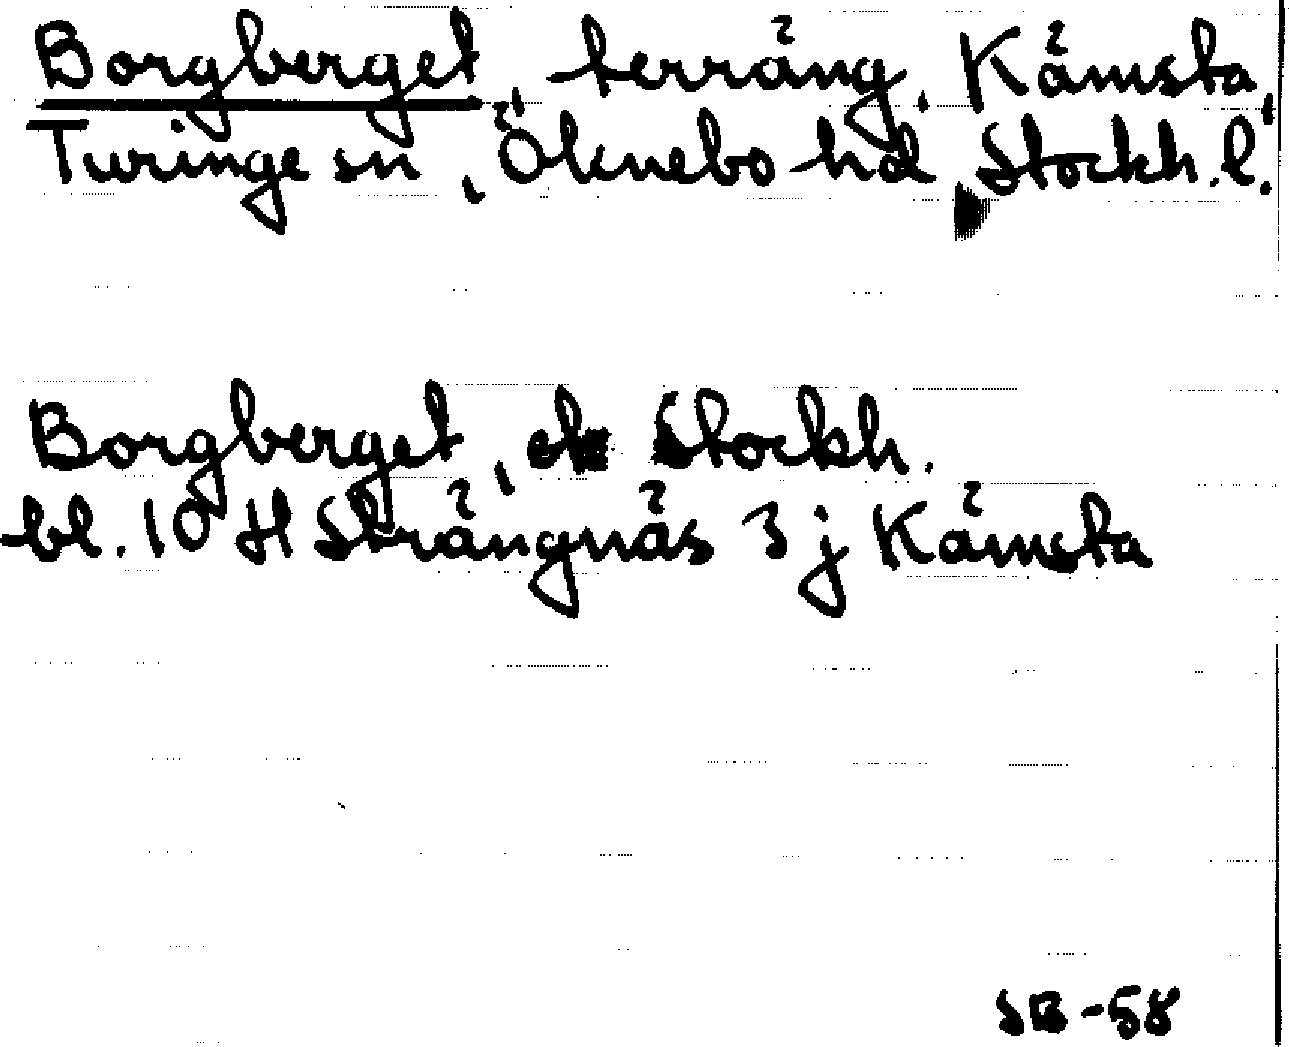 Borgberget, terräng, Kämsta,
Turinge sn, Öknebo hd, Stockh. l.
Borgberget, ek Stockh.
bl. 10 H Strängnäs 3 j Kämsta
SB-58